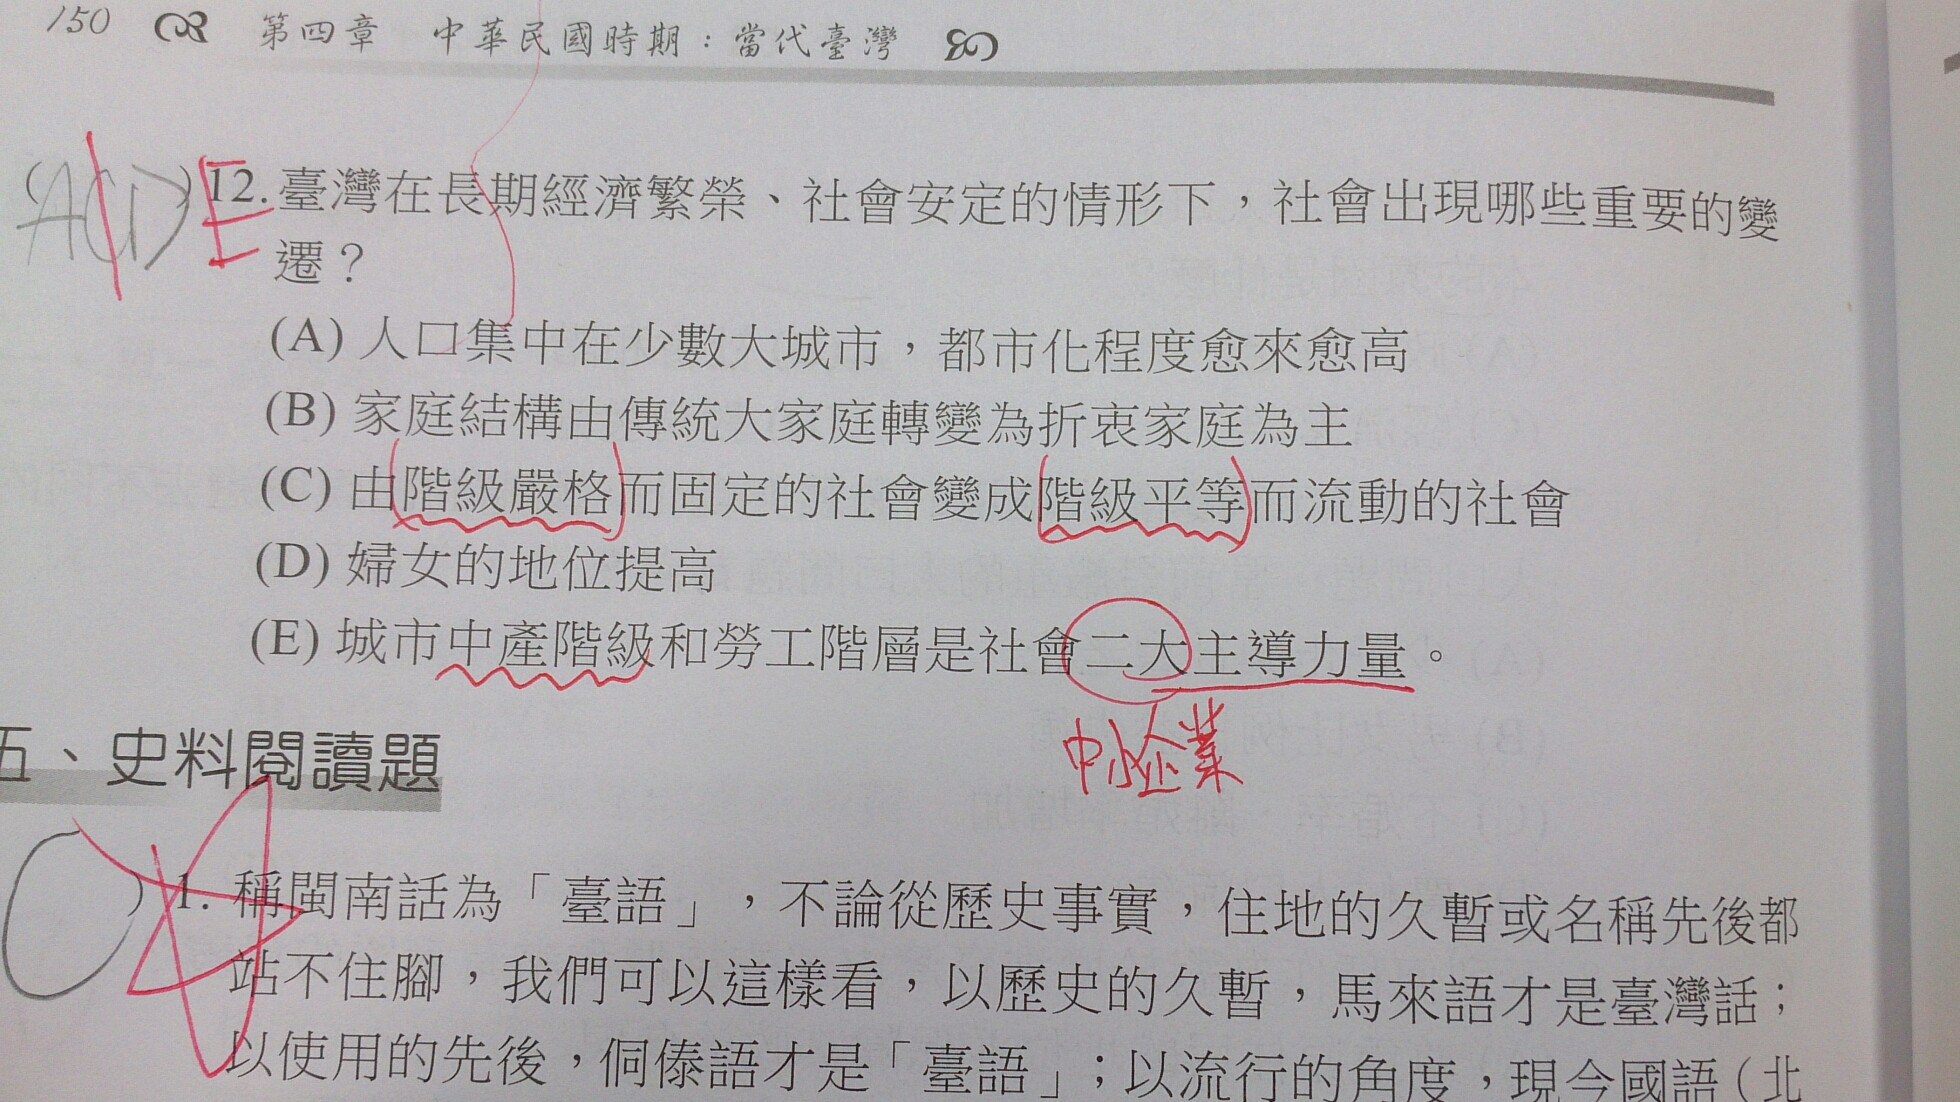 150 第四章 中華民國時期：當代臺灣
(ACD) E 12. 臺灣在長期經濟繁榮、社會安定的情形下，社會出現哪些重要的變
遷？
(A) 人口集中在少數大城市，都市化程度愈來愈高
(B) 家庭結構由傳統大家庭轉變為折衷家庭為主
(C) 由階級嚴格而固定的社會變成階級平等而流動的社會
(D) 婦女的地位提高
(E) 城市中產階級和勞工階層是社會二大主導力量。
中小企業
五、史料閱讀題
( ) 1. 稱閩南話為「臺語」，不論從歷史事實，住地的久暫或名稱先後都
站不住腳，我們可以這樣看，以歷史的久暫，馬來語才是臺灣話；
以使用的先後，侗傣語才是「臺語」；以流行的角度，現今國語（北